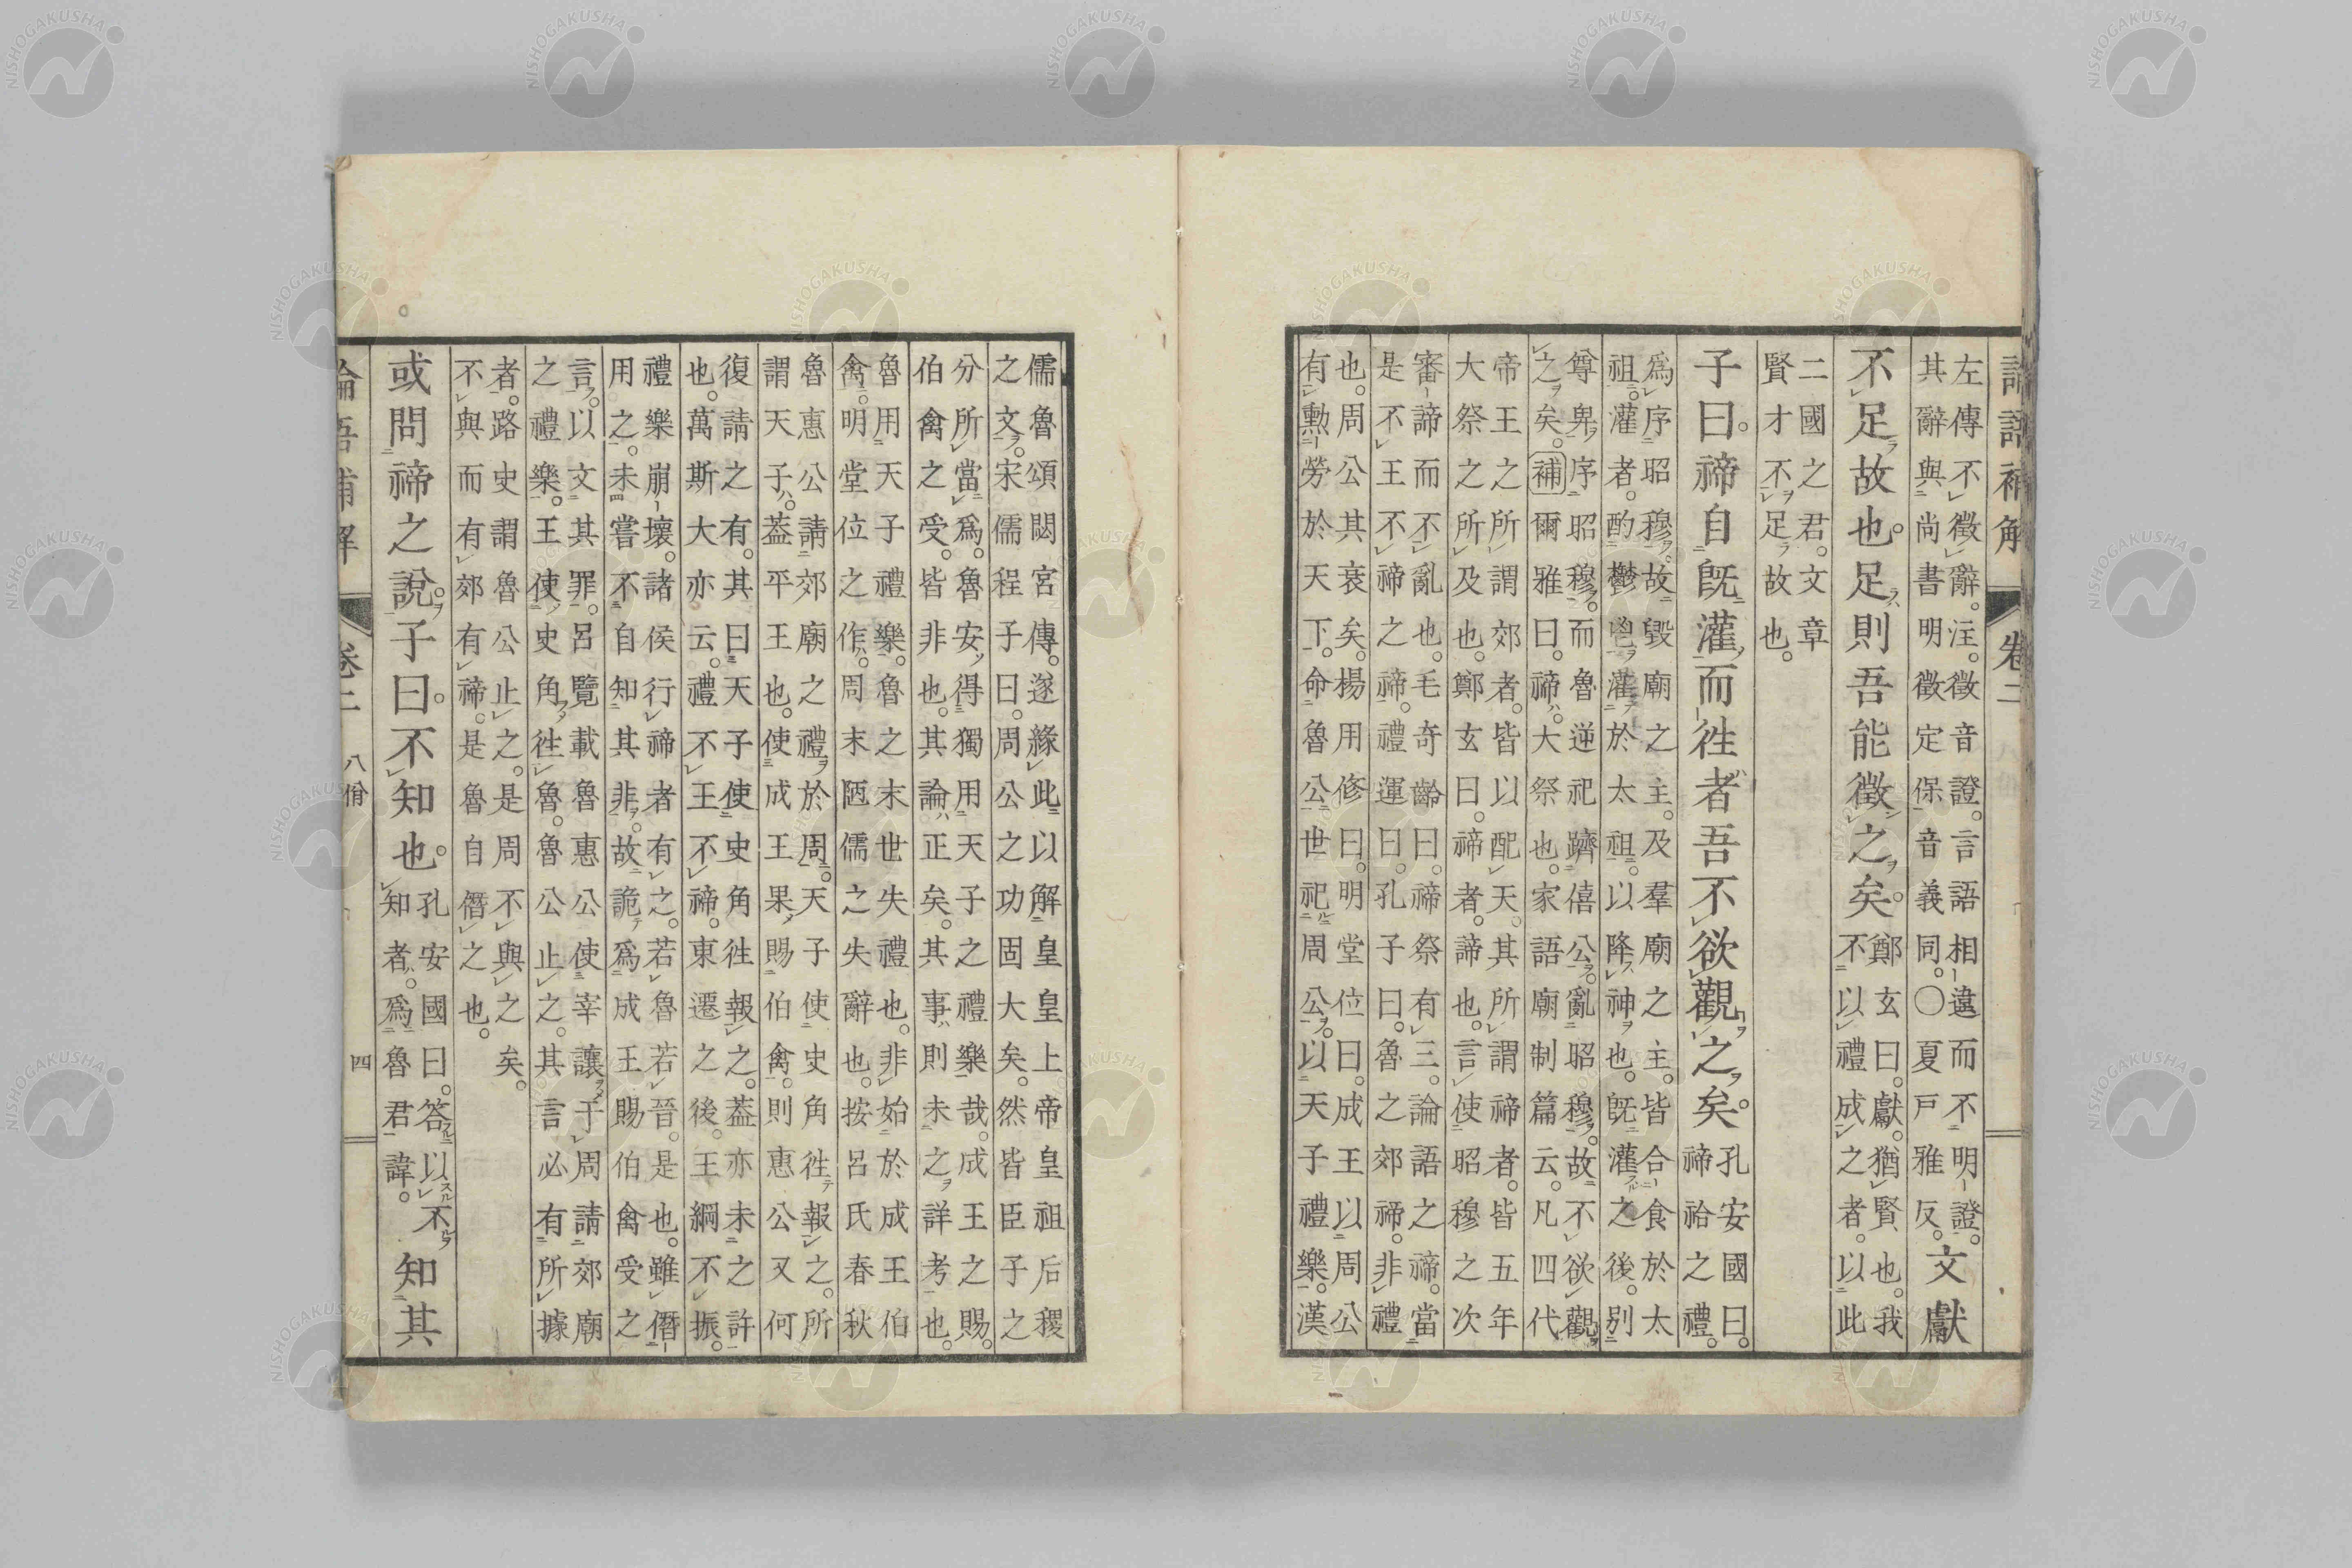 論語補解 卷二
左傳不徵辭。注。徵音證。言語相違而不明證。
其辭與尚書明徵定保音義同。〇夏戸雅反。文獻
不足故也。足則吾能徵之矣。鄭玄曰。獻。猶賢也。我
不以禮成之者。以此
二國之君。文章
賢才不足故也。
子曰。禘自旣灌而徃者吾不欲觀之矣。孔安國曰。
禘祫之禮。
爲序昭穆。故毀廟之主。及羣廟之主。皆合食於太
祖。灌者。酌鬱鬯灌於太祖。以降神也。旣灌之後。別
尊卑序昭穆。而魯逆祀躋僖公。亂昭穆。故不欲觀
之矣。補爾雅曰。禘。大祭也。家語廟制篇云。凡四代
帝王之所謂郊者。皆以配天。其所謂禘者。皆五年
大祭之所及也。鄭玄曰。禘者。諦也。言使昭穆之次
審諦而不亂也。毛奇齡曰。禘祭有三。論語之禘。當
是不王不禘之禘。禮運曰。孔子曰。魯之郊禘。非禮
也。周公其衰矣。楊用修曰。明堂位曰。成王以周公
有勲勞於天下。命魯公世祀周公。以天子禮樂。漢
儒魯頌閟宮傳。遂緣此以解皇皇上帝皇祖后稷
之文。宋儒程子曰。周公之功固大矣。然皆臣子之
分所當爲。魯安得獨用天子之禮樂哉。成王之賜。
伯禽之受。皆非也。其論正矣。其事則未之詳考也。
魯用天子禮樂。魯之末世失禮也。非始於成王伯
禽。明堂位之作。周末陋儒之失辭也。按呂氏春秋
魯惠公請郊廟之禮於周。天子使史角徃報之。所
謂天子。葢平王也。使成王果賜伯禽。則惠公又何
復請之有。其曰天子使史角徃報之。葢亦未之許
也。萬斯大亦云。禮不王不禘。東遷之後。王綱不振。
禮樂崩壞。諸侯行禘者有有之。若魯若晉。是也。雖僭
用之。未嘗不自知其非。故詭爲成王賜伯禽受之
言。以文其罪。呂覽載魯惠公使宰讓于周請郊廟
之禮樂。王使史角徃魯。魯公止之。其言必有所據
者。路史謂魯公止之。是周不與之矣。
不與而有郊有禘。是魯自僭之也。
或問禘之說。子曰。不知也。孔安國曰。答以不
知者。爲魯君諱。知其
論語補解 卷二 八佾 四